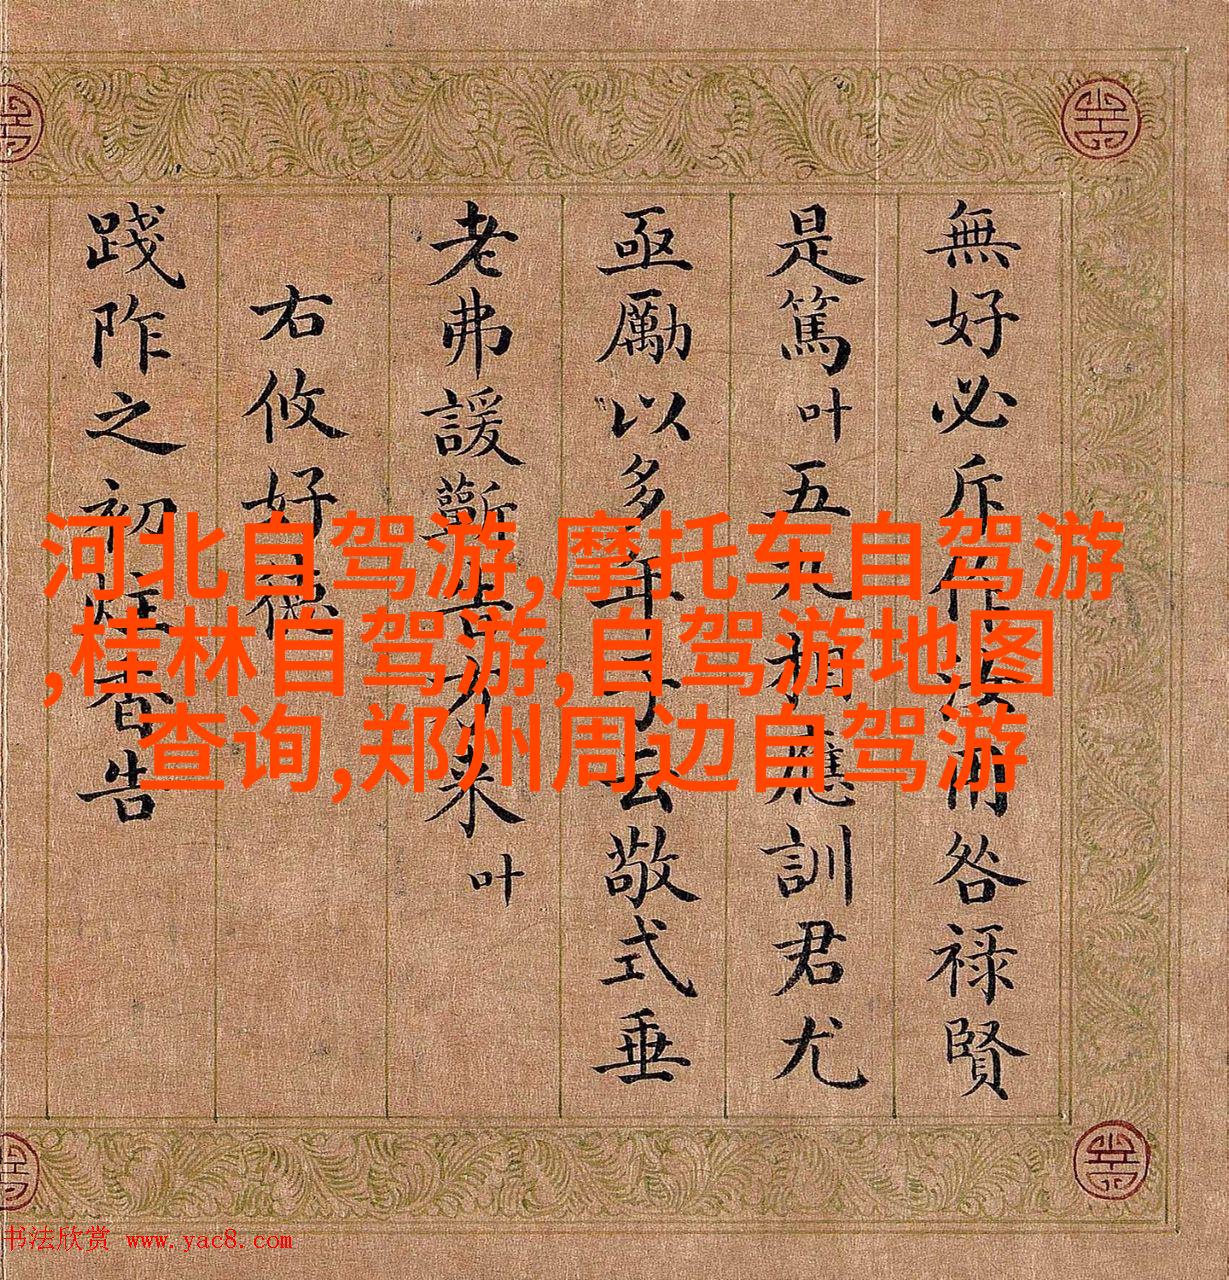 無好必斥作汝用咎祿賢
是篤叶五應訓君尤
亟勵以多年予云敬式垂
老弗諼蘄告方来叶
右攸好德
踐阼之初炷香告
河北自驾游,摩托车自驾游
,桂林自驾游,自驾游地图
查询,郑州周边自驾游
书法欣赏 www.yac8.com